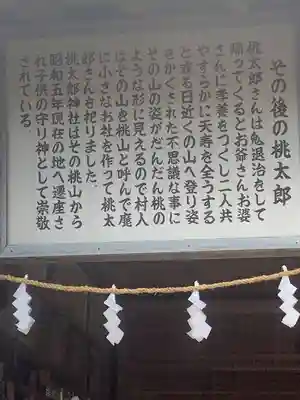 その後の桃太郎
桃太郎さんは鬼退治をして
帰ってくるとお爺さんお婆
さんに孝養をつくし二人共
やすらかに天寿を全うする
とある日近くの山へ登り姿
をかくされた不思議な事に
その山の姿がだんだん桃の
ような形に見えるので村人
はその山を桃山と呼んで麓
に小さなお社を作って桃太
郎さんを祀りました
桃太郎神社はその桃山から
昭和五年現在の地へ遷座さ
れ子供の守り神として崇敬
されている。